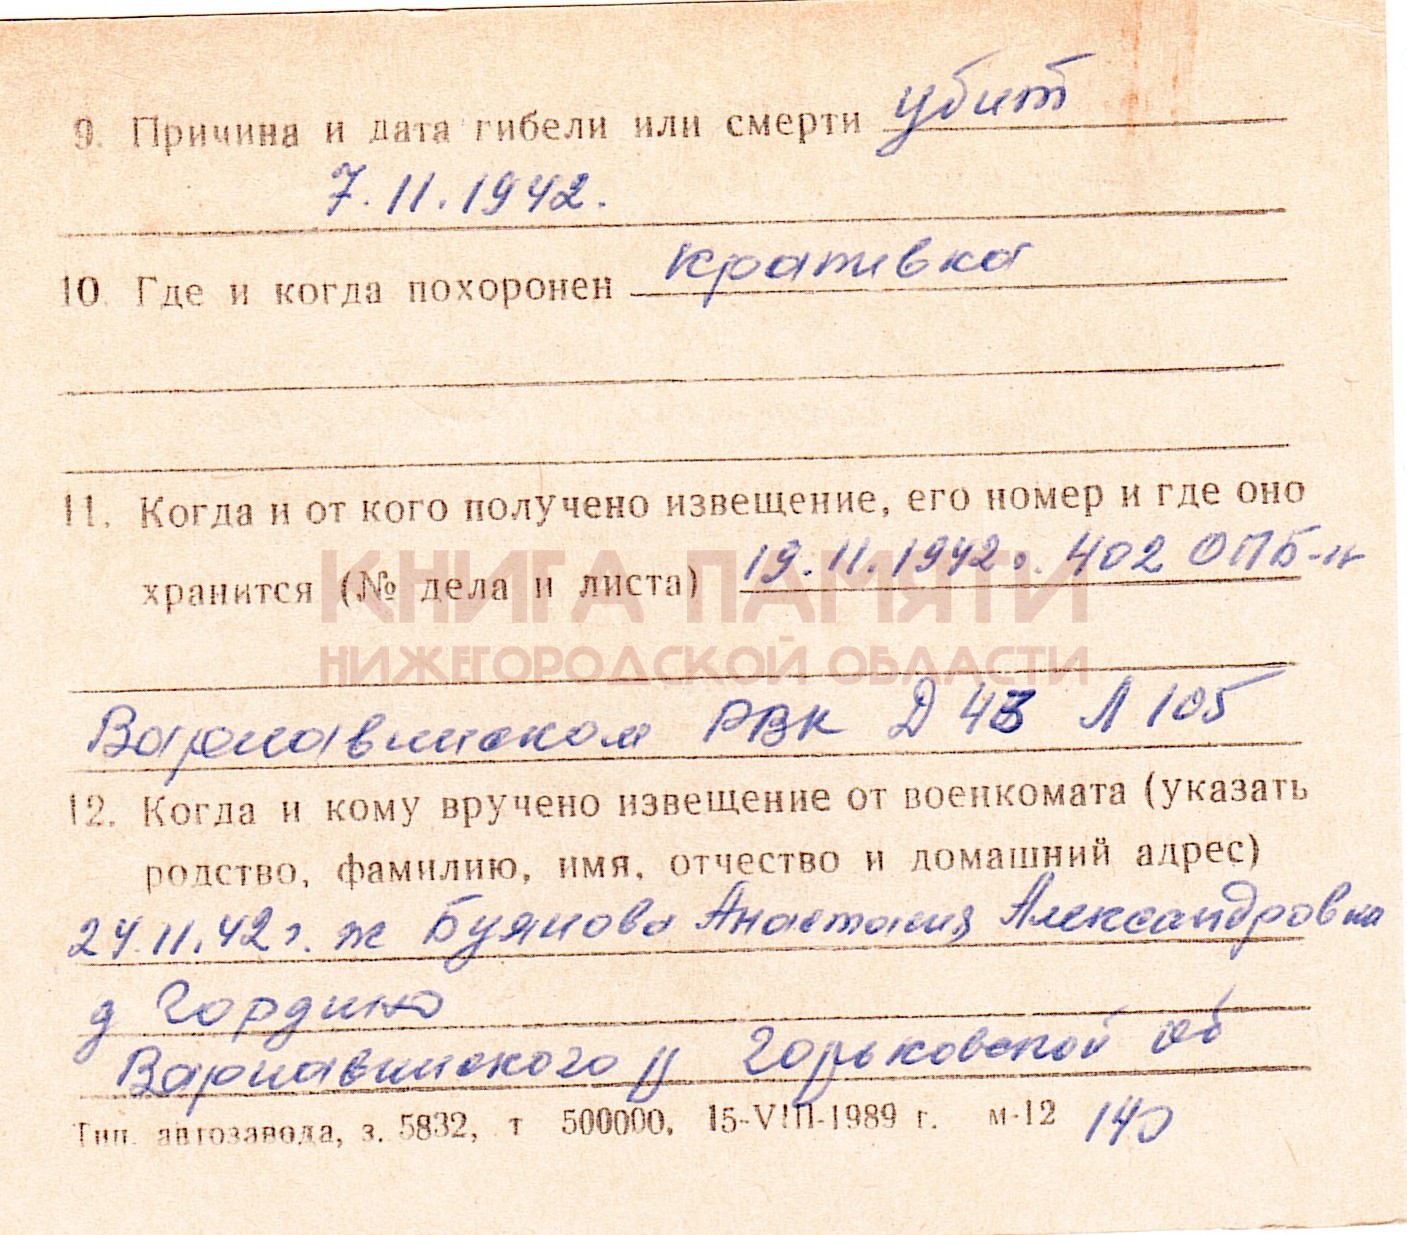 9. Причина и дата гибели или смерти убит
7.11.1942.
10. Где и когда похоронен Крапивка
11. Когда и от кого получено извещение, его номер и где оно
хранится (№ дела и листа) 19.11.1942г. 402 ОПБ-н
КНИГА ПАМЯТИ
НИЖЕГОРОДСКОЙ ОБЛАСТИ
Варнавинском РВК Д 43 Л 105
12. Когда и кому вручено извещение от военкомата (указать
родство, фамилию, имя, отчество и домашний адрес)
24.11.42г. ж Буянова Анастасия Александровна
д Гордино
Варнавинского р Горьковской об
Тип. автозавода, з. 5832, т 500000, 15-VIII-1989 г. м-12